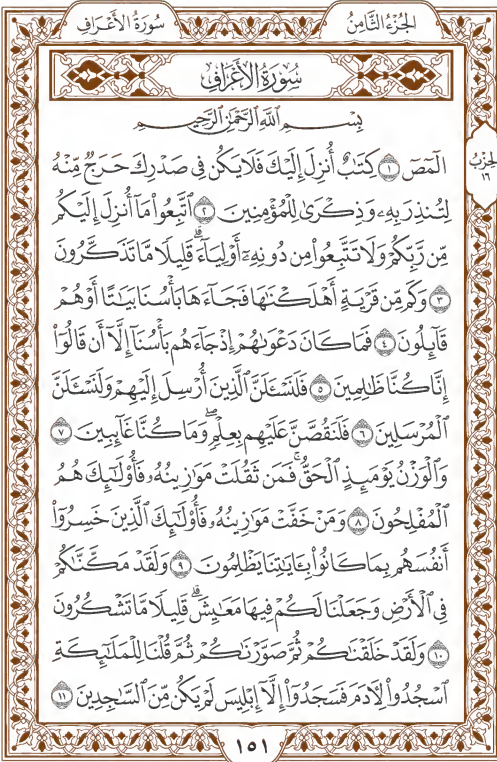 سُورَةُ الأَعۡرَافِ
الجُزۡءُ الثَّامِنُ
سُورَةُ الأَعۡرَافِ
بِسۡمِ ٱللَّهِ ٱلرَّحۡمَٰنِ ٱلرَّحِيمِ
الٓمٓصٓ ١ كِتَٰبٌ أُنزِلَ إِلَيۡكَ فَلَا يَكُن فِي صَدۡرِكَ حَرَجٞ مِّنۡهُ
الحِزۡبُ
١٦
لِتُنذِرَ بِهِۦ وَذِكۡرَىٰ لِلۡمُؤۡمِنِينَ ٢ ٱتَّبِعُواْ مَآ أُنزِلَ إِلَيۡكُم
مِّن رَّبِّكُمۡ وَلَا تَتَّبِعُواْ مِن دُونِهِۦٓ أَوۡلِيَآءَۗ قَلِيلٗا مَّا تَذَكَّرُونَ
٣ وَكَم مِّن قَرۡيَةٍ أَهۡلَكۡنَٰهَا فَجَآءَهَا بَأۡسُنَا بَيَٰتًا أَوۡ هُمۡ
قَآئِلُونَ ٤ فَمَا كَانَ دَعۡوَىٰهُمۡ إِذۡ جَآءَهُم بَأۡسُنَآ إِلَّآ أَن قَالُوٓاْ
إِنَّا كُنَّا ظَٰلِمِينَ ٥ فَلَنَسۡـَٔلَنَّ ٱلَّذِينَ أُرۡسِلَ إِلَيۡهِمۡ وَلَنَسۡـَٔلَنَّ
ٱلۡمُرۡسَلِينَ ٦ فَلَنَقُصَّنَّ عَلَيۡهِم بِعِلۡمٖۖ وَمَا كُنَّا غَآئِبِينَ ٧
وَٱلۡوَزۡنُ يَوۡمَئِذٍ ٱلۡحَقُّۚ فَمَن ثَقُلَتۡ مَوَٰزِينُهُۥ فَأُوْلَٰٓئِكَ هُمُ
ٱلۡمُفۡلِحُونَ ٨ وَمَنۡ خَفَّتۡ مَوَٰزِينُهُۥ فَأُوْلَٰٓئِكَ ٱلَّذِينَ خَسِرُوٓاْ
أَنفُسَهُم بِمَا كَانُواْ بِـَٔايَٰتِنَا يَظۡلِمُونَ ٩ وَلَقَدۡ مَكَّنَّٰكُمۡ
فِي ٱلۡأَرۡضِ وَجَعَلۡنَا لَكُمۡ فِيهَا مَعَٰيِشَۗ قَلِيلٗا مَّا تَشۡكُرُونَ
١٠ وَلَقَدۡ خَلَقۡنَٰكُمۡ ثُمَّ صَوَّرۡنَٰكُمۡ ثُمَّ قُلۡنَا لِلۡمَلَٰٓئِكَةِ
ٱسۡجُدُواْ لِأٓدَمَ فَسَجَدُوٓاْ إِلَّآ إِبۡلِيسَ لَمۡ يَكُن مِّنَ ٱلسَّٰجِدِينَ ١١
١٥١